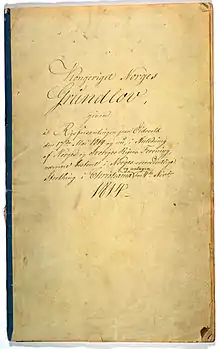 Kongeriget Norges
Grundlov,
given
i Rigsforsamlingen paa Eidsvold
den 17de Mai 1814 og nu, i Anledning
af Norges og Sveriges Forening,
Norges overordentlige
Storthing i Christiania den 4de Novbr
1814